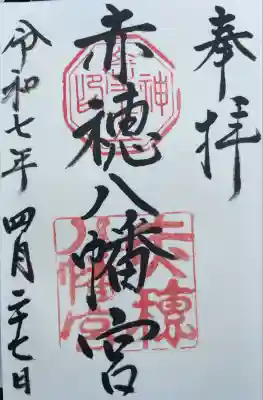 奉拝
赤穂八幡宮
令和七年 四月二十七日
赤穂
八幡宮